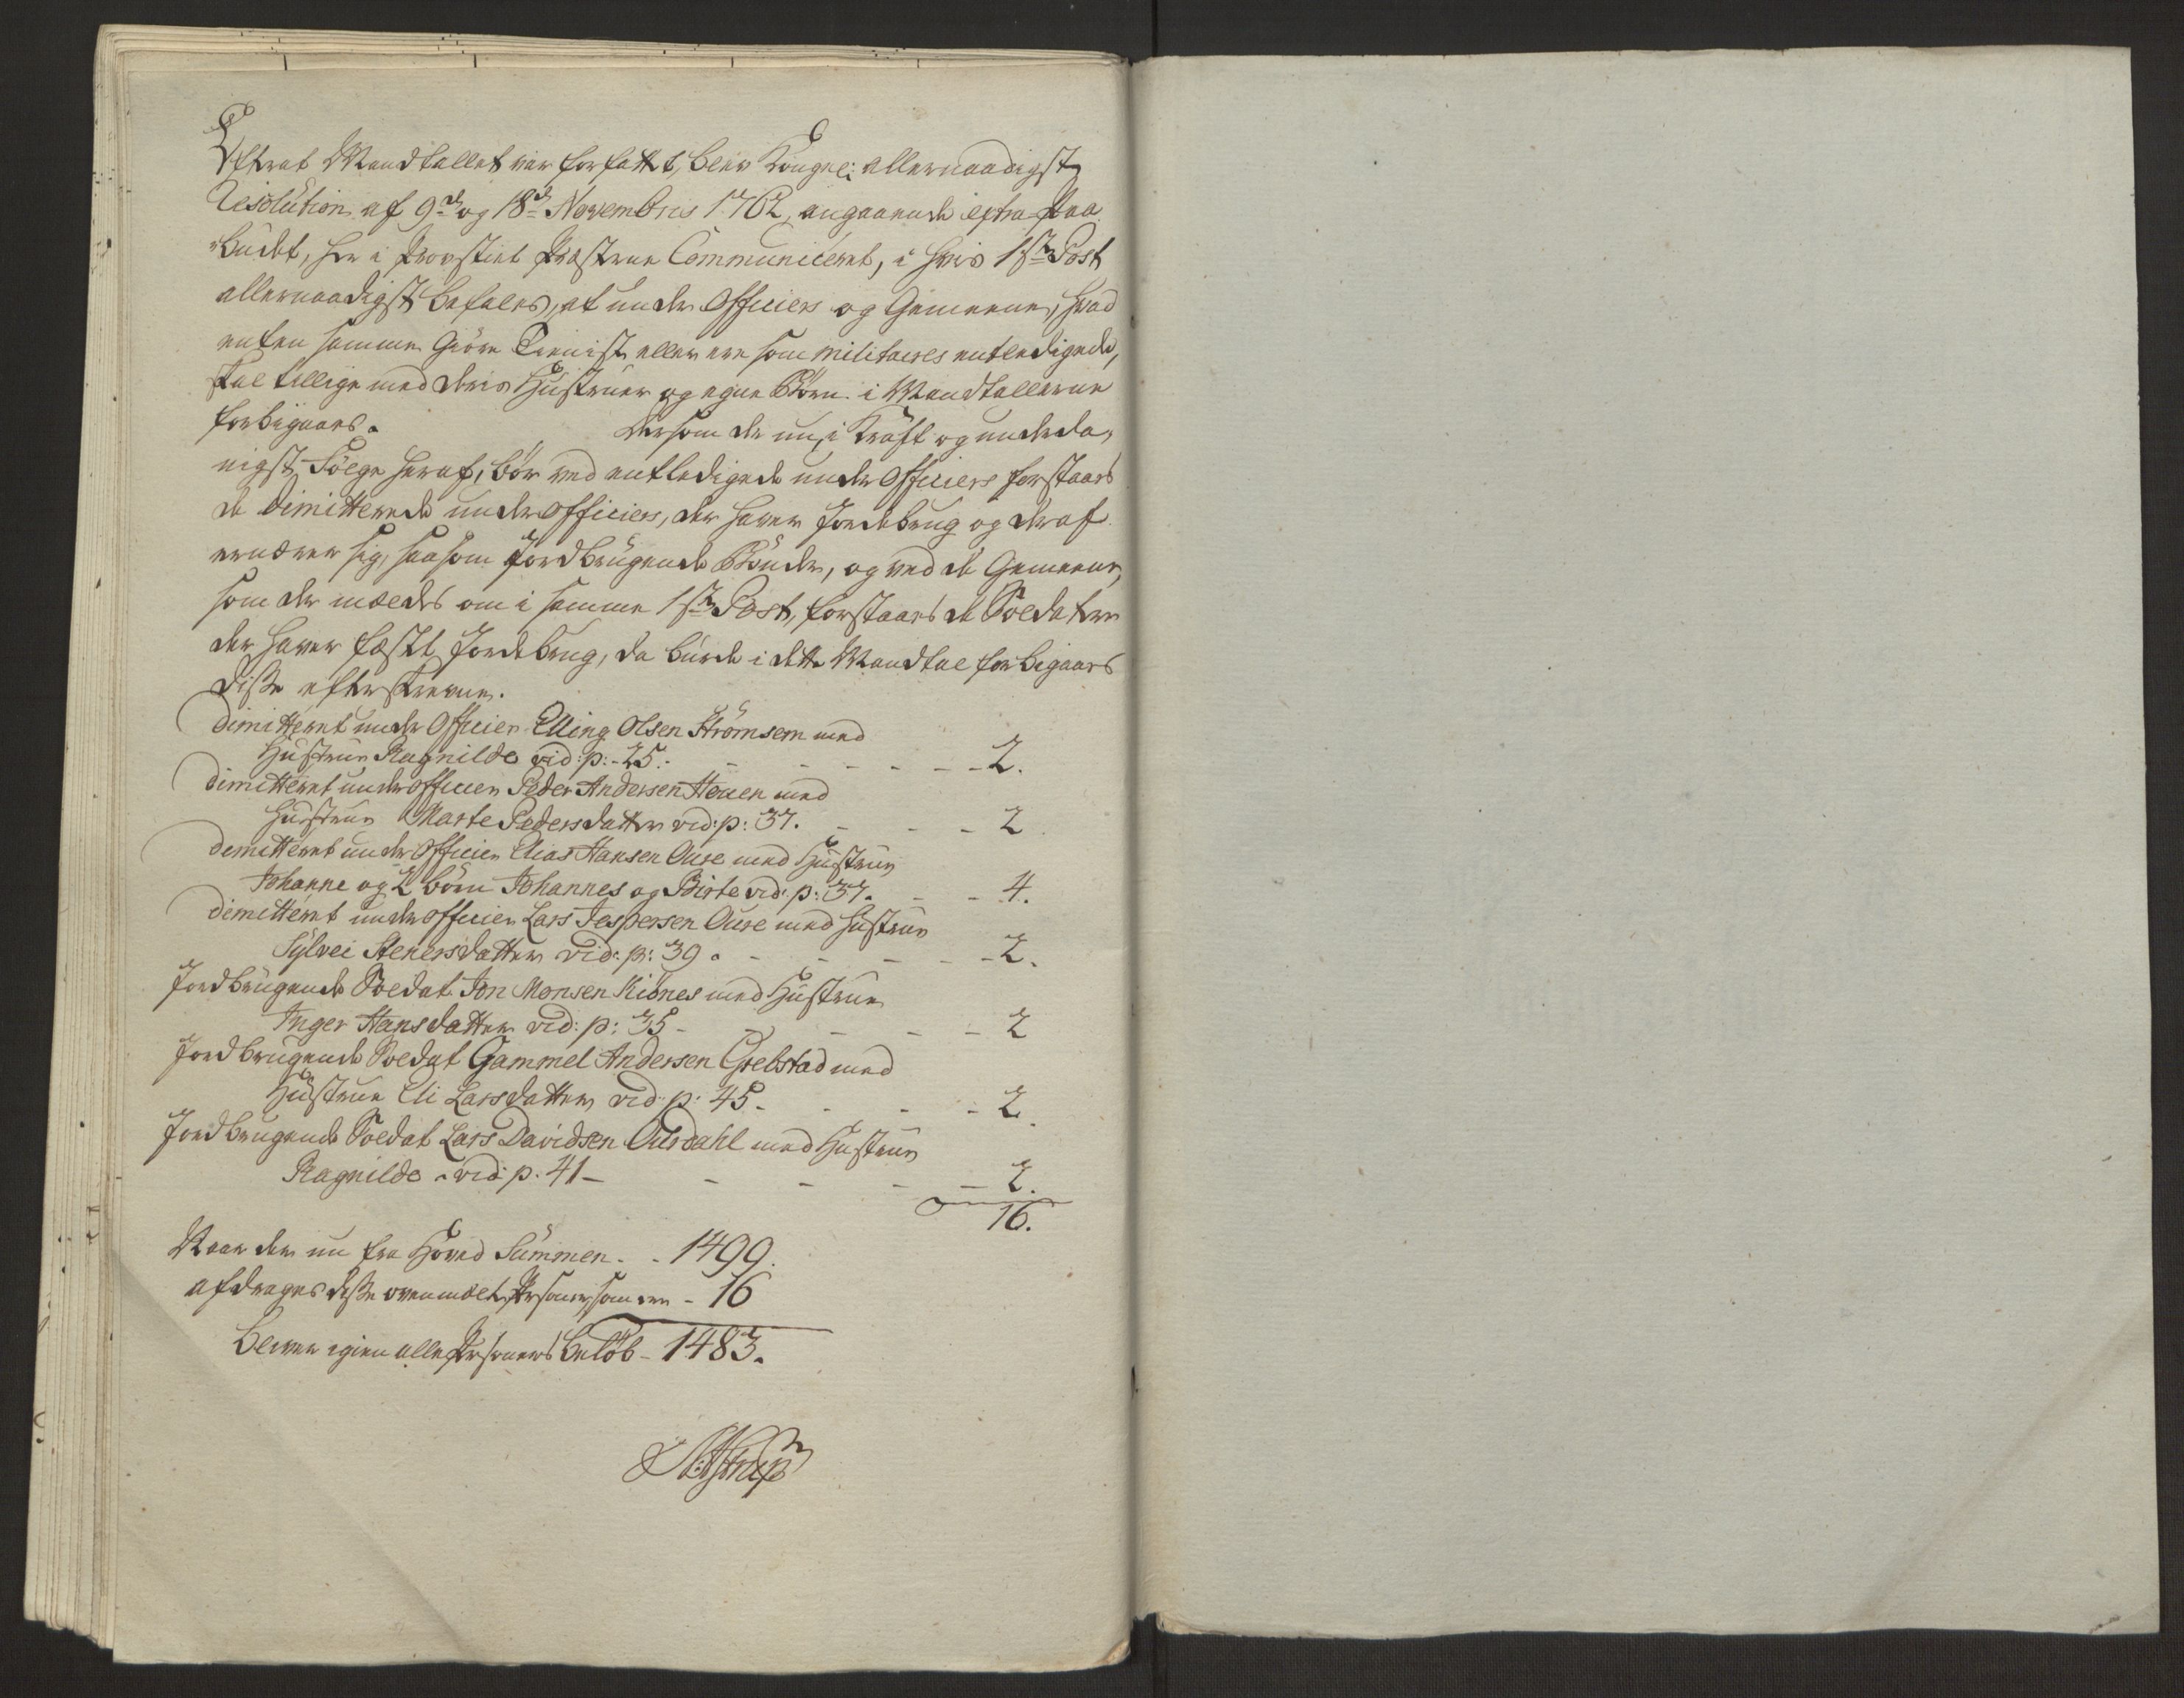 Efterat Mandtallet var forfattet, blev Kongel: allernaadigst
Resolution af 9de og 18de Novembris 1762, angaaende extra Paa¬
budet, her i Provstiet Præsterne Communiceret, i hvis 1ste Post
allernaadigst befales, at under Officiers og Gemeene, hvad
enten samme Giöre Tienist eller ere som militaires entledigede,
skal tillige med deres Hustruer og egne Börn i Mandtallerne
forbigaaes.
dersom der nu, i Kraft og underda,
nigst Fölge heraf, bör ved entledigede under Officiers forstaaes
de dimitterede under officiers, der haver Jordebrug og deraf
ernærer sig, saasom Jordbrugende Bönder, og ved de Gemeene,
som der meldes om i samme 1ste Post, forstaaes de Soldater
der haver fæstet Jordebrug, da burde i dette Mandtal forbigaaes
disse efterskrevne.
dimitteret under Officier Elling Olsen Strömsem med
Hustrue Ragnilde vid: p: 25. - - - - - 2.
dimitteret under officier Peder Andersen Houen med
Hustrue Marte Pedersdatter vid: p: 37. - - - 2
demitteret under Officier Elias Hansen Oure med Hustrue
Johanne og 2 börn Johannes og Birte vid: p: 37. - - 4.
dimitteret under officier Lars Jespersen Oure med Hustrue
Sylvei Stenersdatter vid: p: 39. - - - - 2.
Jordbrugende Soldat Jon Monsen Kiönes med Hustrue
Inger Hansdatter vid: p: 35 - - - - - 2
Jordbrugende Soldat Gammel Andersen Grebstad med
Hustrue Eli Larsdatter vid: p: 45. - - - 2.
Jordbrugende Soldat Lars Davidsen Ousdahl med Hustrue
Ragnilde - vid: p. 41 - - - - - 2.
16.
Naar der nu fra Hoved Summen - - 1499.
afdrages disse ovenmelte Personer, som ere - 16
bliver igien alle Personers Belöb - 1483.